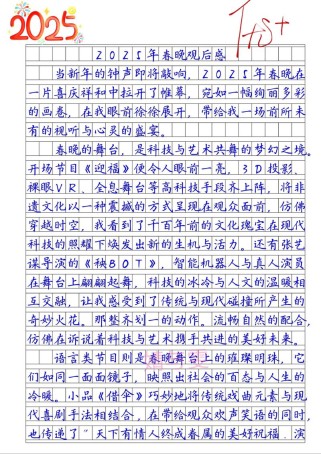 2025
2025年春晚观后感
当新年的钟声即将敲响，2025年春晚在
一片喜庆祥和中拉开了帷幕，宛如一幅绚丽多彩
的画卷，在我眼前徐徐展开，带给我一场前所未
有的视听与心灵的盛宴。
春晚的舞台，是科技与艺术共舞的梦幻之境。
开场节目《迎福》便令人眼前一亮，3D投影、
裸眼VR、全息舞台等高科技手段齐上阵，将非
遗文化以一种震撼的方式呈现在观众面前，仿佛
穿越时空，我看到了千百年前的文化瑰宝在现代
科技的照耀下焕发出新的生机与活力。还有张艺
谋导演的《秧BOT》，智能机器人与真人演员
在舞台上翩翩起舞，科技的冰冷与人文的温暖相
互交融，让我感受到了传统与现代碰撞所产生的
奇妙火花。那整齐划一的动作。流畅自然的配合，
仿佛在诉说着科技与艺术携手共进的美好未来。
语言类节目则是春晚舞台上的璀璨明珠，它
们如同一面面镜子，映照出社会的百态与人生的
冷暖。小品《借伞》巧妙地将传统戏曲元素与现
代喜剧手法相结合，在带给观众欢声笑语的同时，
也传递了“天下有情人终成眷属的美好祝福．演